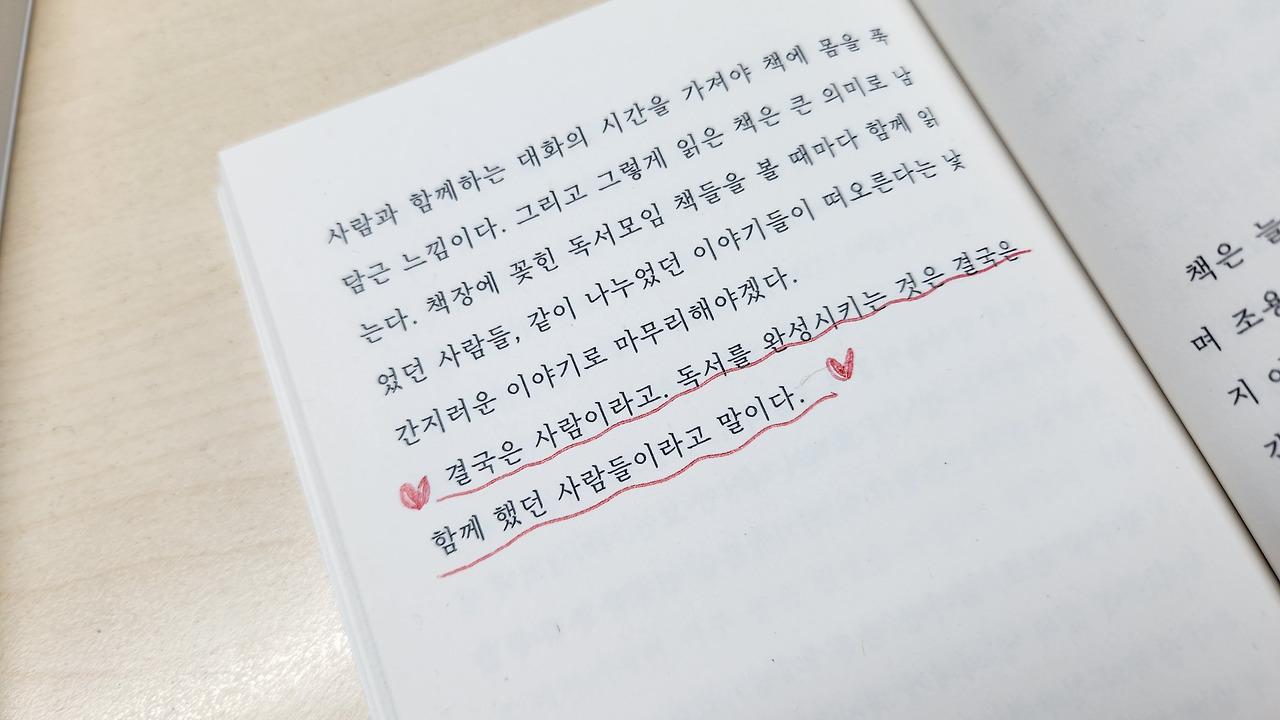 사람과 함께하는 대화의 시간을 가져야 책에 몸을 푹
담근 느낌이다. 그리고 그렇게 읽은 책은 큰 의미로 남
는다. 책장에 꽂힌 독서모임 책들을 볼 때마다 함께 읽
었던 사람들, 같이 나누었던 이야기들이 떠오른다는 낯
간지러운 이야기로 마무리해야겠다.
결국은 사람이라고. 독서를 완성시키는 것은 결국은
함께 했던 사람들이라고 말이다.
책은 늘
며 조용
지